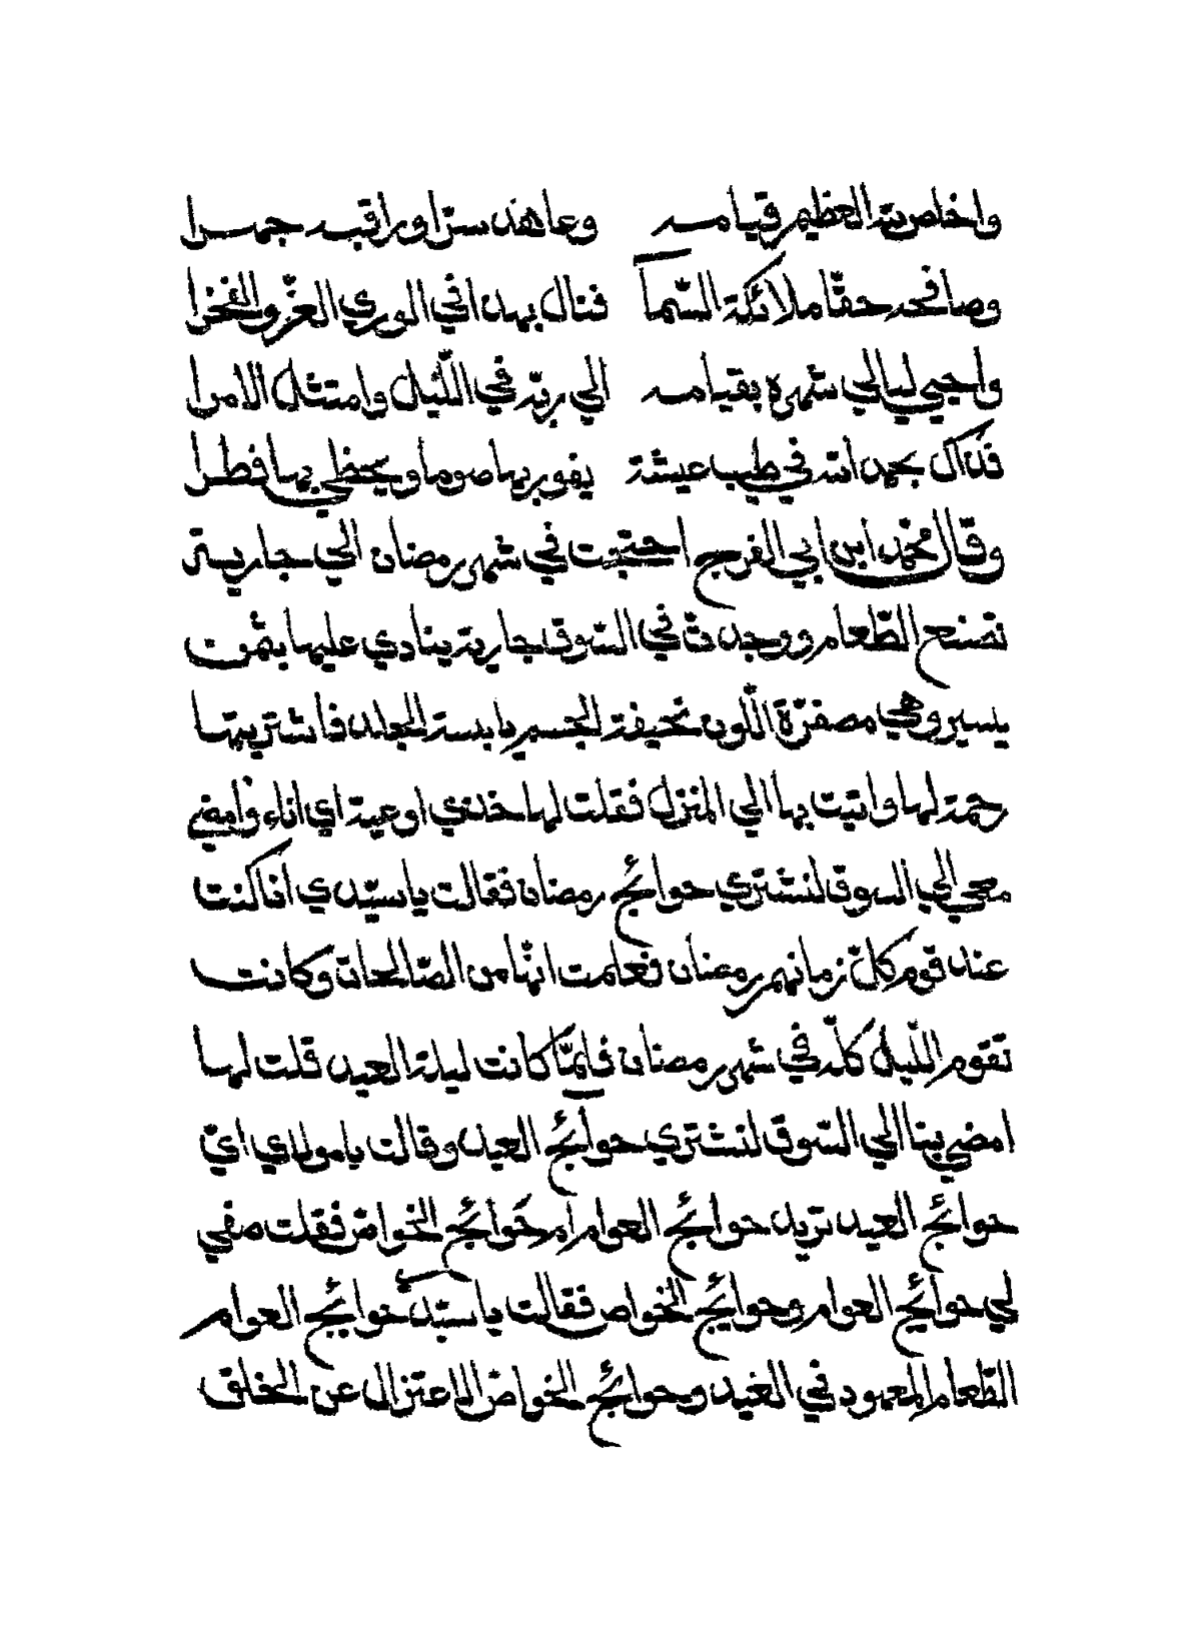 واخلص لله العظيم قيامه وعاهده سرّا وراقبه جهرا
وصافحه حقّا ملائكة السّمآ فنال بهدا في الوري العزّ والفخرا
واحيي ليالي شهره بقيامه الي ربّه في اللّيل وامتثل الامرا
فذاك بحمد الله في طيب عيشة يفوز بها صوما ويحظي بها فطرا
وقال محمّد ابن ابي الفرج احتجبت في شهر رمضان الي جارية
تصنع الطّعام ووجدت في السّوق جارية ينادي عليها بثمن
يسير وهي مصفرّة اللّون نحيفة الجسم يابسة الجلد فاشتريتها
رحمة لها واتيت بها الي المنزل فقلت لها خدي اوعية اي اناء وامضي
معي الي السوق لنشتري حوائج رمضان فقالت يا سيّدي انا كنت
عند قوم كلّ زمانهم رمضان فعلمت انّها من الصّالحات وكانت
تقوم اللّيل كلّه في شهر رمضان فلمّا كانت ليلة العيد قلت لها
امضي بنا الي السّوق لنشتري حوائج العيد وقالت يا مولاي ايّ
حوائج العيد تريد حوائج العوام ام حوائج الخواصّ فقلت صفي
لي حوائج العوام وحوائج الخواص فقالت يا سيّدي حوائج العوام
الطّعام المعهود في العيد وحوائج الخواصّ الاعتزال عن الخلق